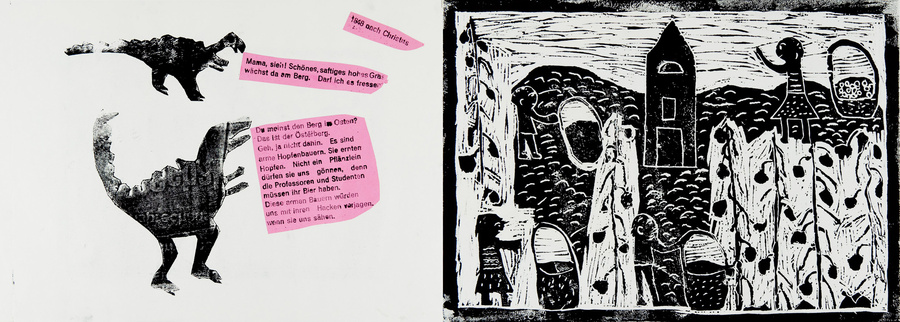 1848 nach Christus
Mama, sieh! Schönes, saftiges hohes Gras
wächst da am Berg. Darf ich es fressen
Du meinst den Berg im Osten?
Das ist der Österberg.
Geh, ja nicht dahin. Es sind
arme Hopfenbauern. Sie ernten
Hopfen. Nicht ein Pflänzlein
dürfen sie uns gönnen, denn
die Professoren und Studenten
müssen ihr Bier haben.
Diese armen Bauern würden
uns mit ihren Hacken verjagen,
wenn sie uns sähen.